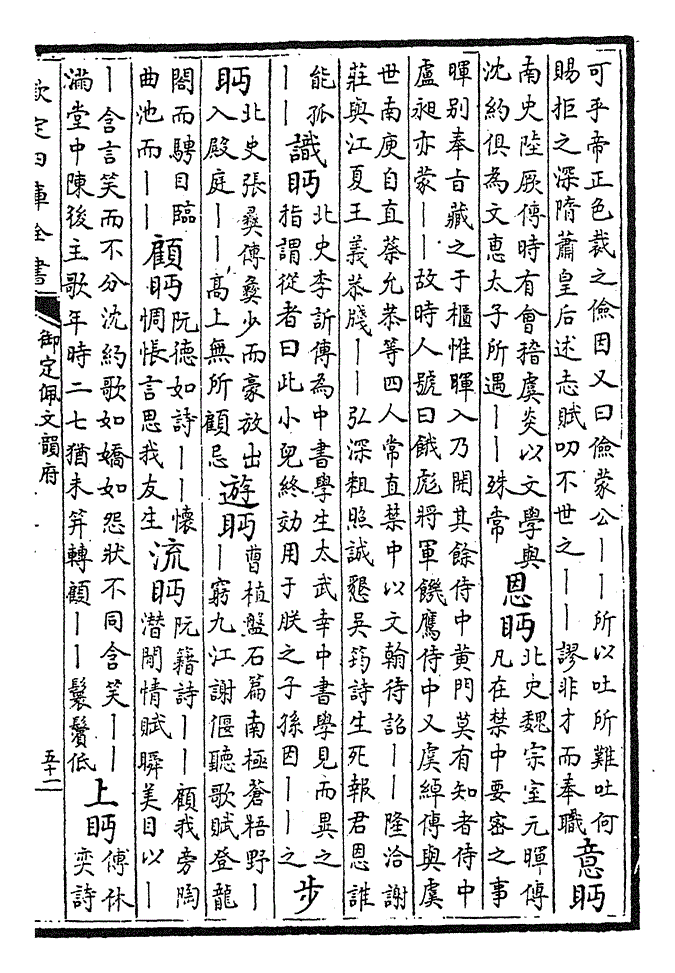 可乎帝正色裁之儉因又曰儉蒙公——所以吐所難吐何
賜拒之深隋蕭皇后述志賦叨不世之——謬非才而奉職
意眄
南史陸厥傳時有會稽虞炎以文學與
沈約俱為文惠太子所遇——殊常
恩眄
北史魏宗室元暉傳
凡在禁中要密之事
暉别奉旨藏之于櫃惟暉入乃開其餘侍中黄門莫有知者侍中
盧昶亦蒙——故時人號曰餓彪將軍饑鷹侍中又虞綽傳與虞
世南庾自直蔡允恭等四人常直禁中以文翰待詔——隆洽謝
莊與江夏王義恭牋——弘深粗照誠懇吳筠詩生死報君恩誰
能孤
——
識眄
北史李訢傳為中書學生太武幸中書學見而異之
指謂從者曰此小兒終効用于朕之子孫因——之
步
眄
北史張彛傳彛少而豪放出
入殿庭——高上無所顧忌
遊眄
曹植盤石篇南極蒼梧野—
—窮九江謝偃聽歌賦登龍
閣而騁目臨
曲池而——
顧眄
阮德如詩——懷
惆悵言思我友生
流眄
阮籍詩——顧我旁陶
潛閒情賦瞬美目以—
—含言笑而不分沈約歌如嬌如怨狀不同含笑——
滿堂中陳後主歌年時二七猶未笄轉顧——鬟鬢低
上眄
傅休
奕詩
欽定四庫全書
御定佩文韻府
五十二